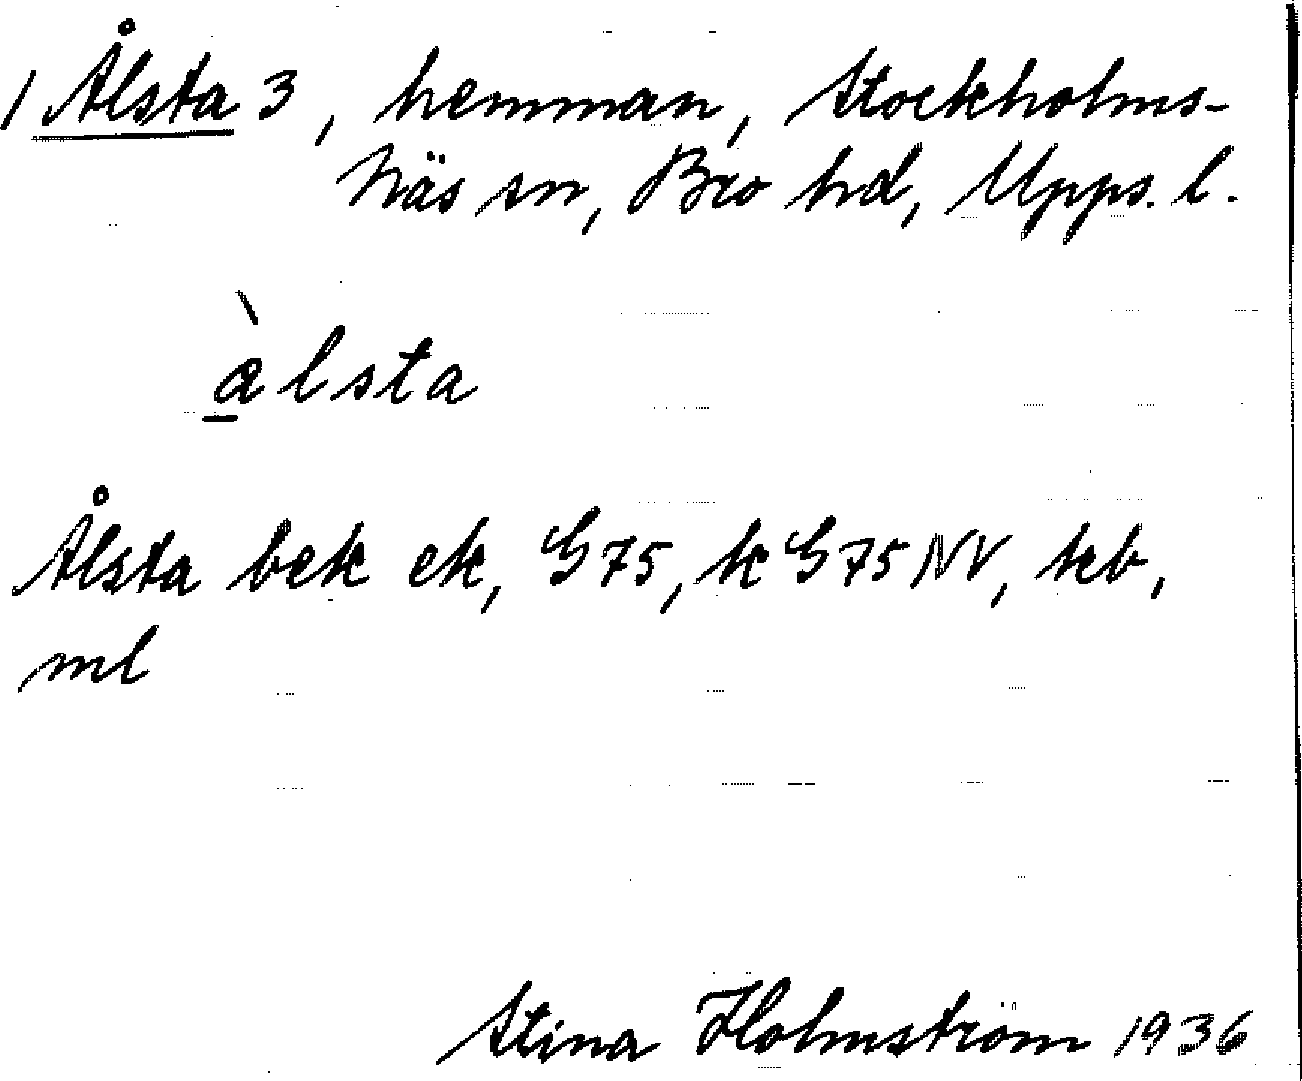 1 Ålsta 3, hemman, Stockholms-
Näs sn, Bro hd, Upps. l.
àlsta
Ålsta bek ek, G75, k G75NV, kb,
ml
Stina Holmström 1936